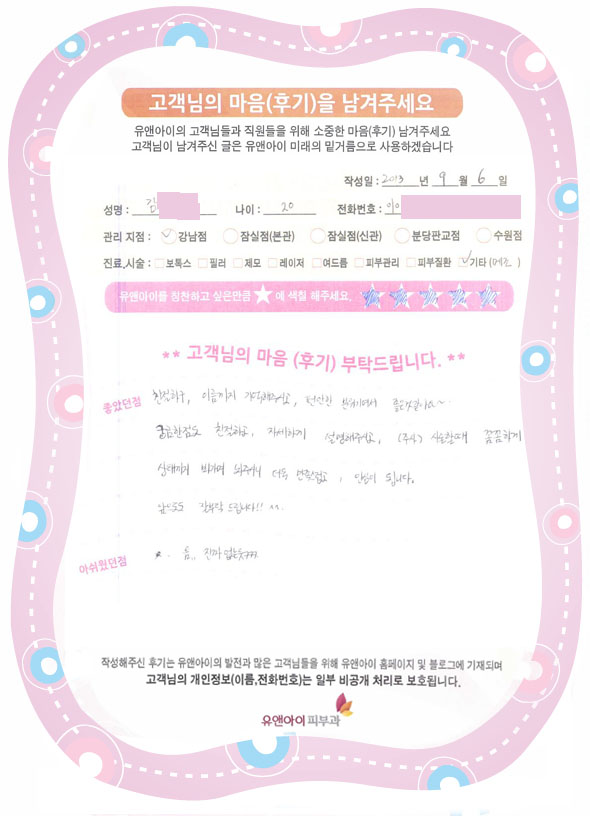 고객님의 마음(후기)을 남겨주세요
유앤아이의 고객님들과 직원들을 위해 소중한 마음(후기) 남겨주세요
고객님이 남겨주신 글은 유앤아이 미래의 밑거름으로 사용하겠습니다
작성일 : 2013 년 9 월 6 일
성명 : 김 나이 : 20 전화번호 : 010
관리 지점 : 강남점 잠실점(본관) 잠실점(신관) 분당판교점 수원점
진료,시술 : 보톡스 필러 제모 레이저 여드름 피부관리 피부질환 기타 (메조)
유앤아이를 칭찬하고 싶은만큼 ★에 색칠 해주세요.
** 고객님의 마음 (후기) 부탁드립니다. **
좋았던점 친절하구, 이름까지 기억해주셔요, 편안한 분위기여서 좋은것같아요~
궁금한점도 친절하고, 자세하게 설명해주셔요, (주사) 시술할때 꼼꼼하게
상태까지 봐가며 놔주셔서 더욱 만족했고, 안심이 됩니다.
앞으로도 잘부탁 드립니다!! ^^.
아쉬웠던점 흠.. 진짜 없는듯
작성해주신 후기는 유앤아이의 발전과 많은 고객님들을 위해 유앤아이 홈페이지 및 블로그에 기재되며
고객님의 개인정보(이름,전화번호)는 일부 비공개 처리로 보호됩니다.
유앤아이피부과